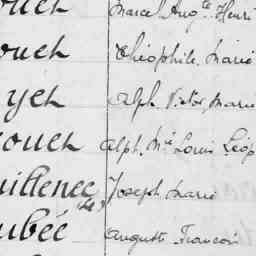 ouch Marcel Aug.te Henri
ouch Théophile Marie
yeh Alph. Victor, Marie
ouch Alph. Mie Louis Léop
uillenec (Le) Joseph Marie
ubée Auguste François